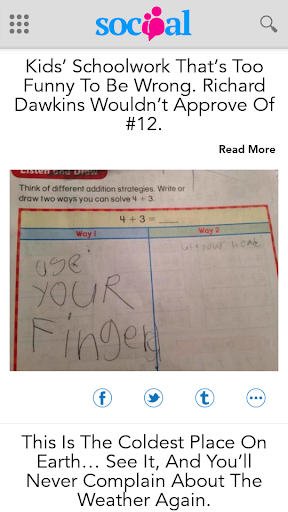 socal
Kids' Schoolwork That's Too
Funny To Be Wrong. Richard
Dawkins Wouldn't Approve Of
#12.
Read More
Listen and Draw
Think of different addition strategies. Write or
draw two ways you can solve 4 + 3.
4 + 3 =
Way 1
Way 2
use
YOUR
Finger
This Is The Coldest Place On
Earth… See It, And You'll
Never Complain About The
Weather Again.